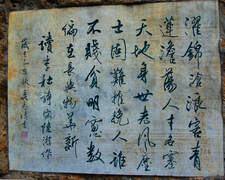 濯錦滄浪客青
蓮澹蕩人才名塞
天地身世老風塵
士固難推挽人誰
不賤貧明窗數
編在長與物華新
讀李杜詩宋陸游作